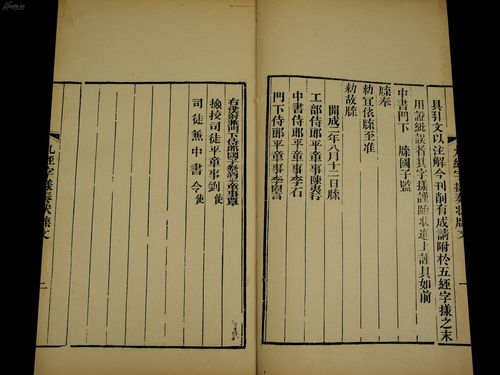 具引文以注解今刊削有成請附於五經字㨾之末
用證紕誤者其字㨾謹隨狀進上謹具如前
中書門下　牒國子監
牒奉
勅宜依牒至准
勅故牒
開成二年八月十二日牒
工部侍郎平章事陳夷行
中書侍郎平章事李石
門下侍郎平章事李
右僕射兼門下侍郎國子祭酒平章事覃
檢校司徒平章事劉　使
司徒兼中書令　使
九經字㨾奏狀牒文
二